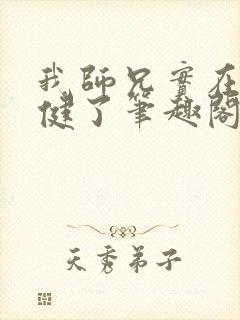 我師兄實在
健了筆趣閣
天秀弟子